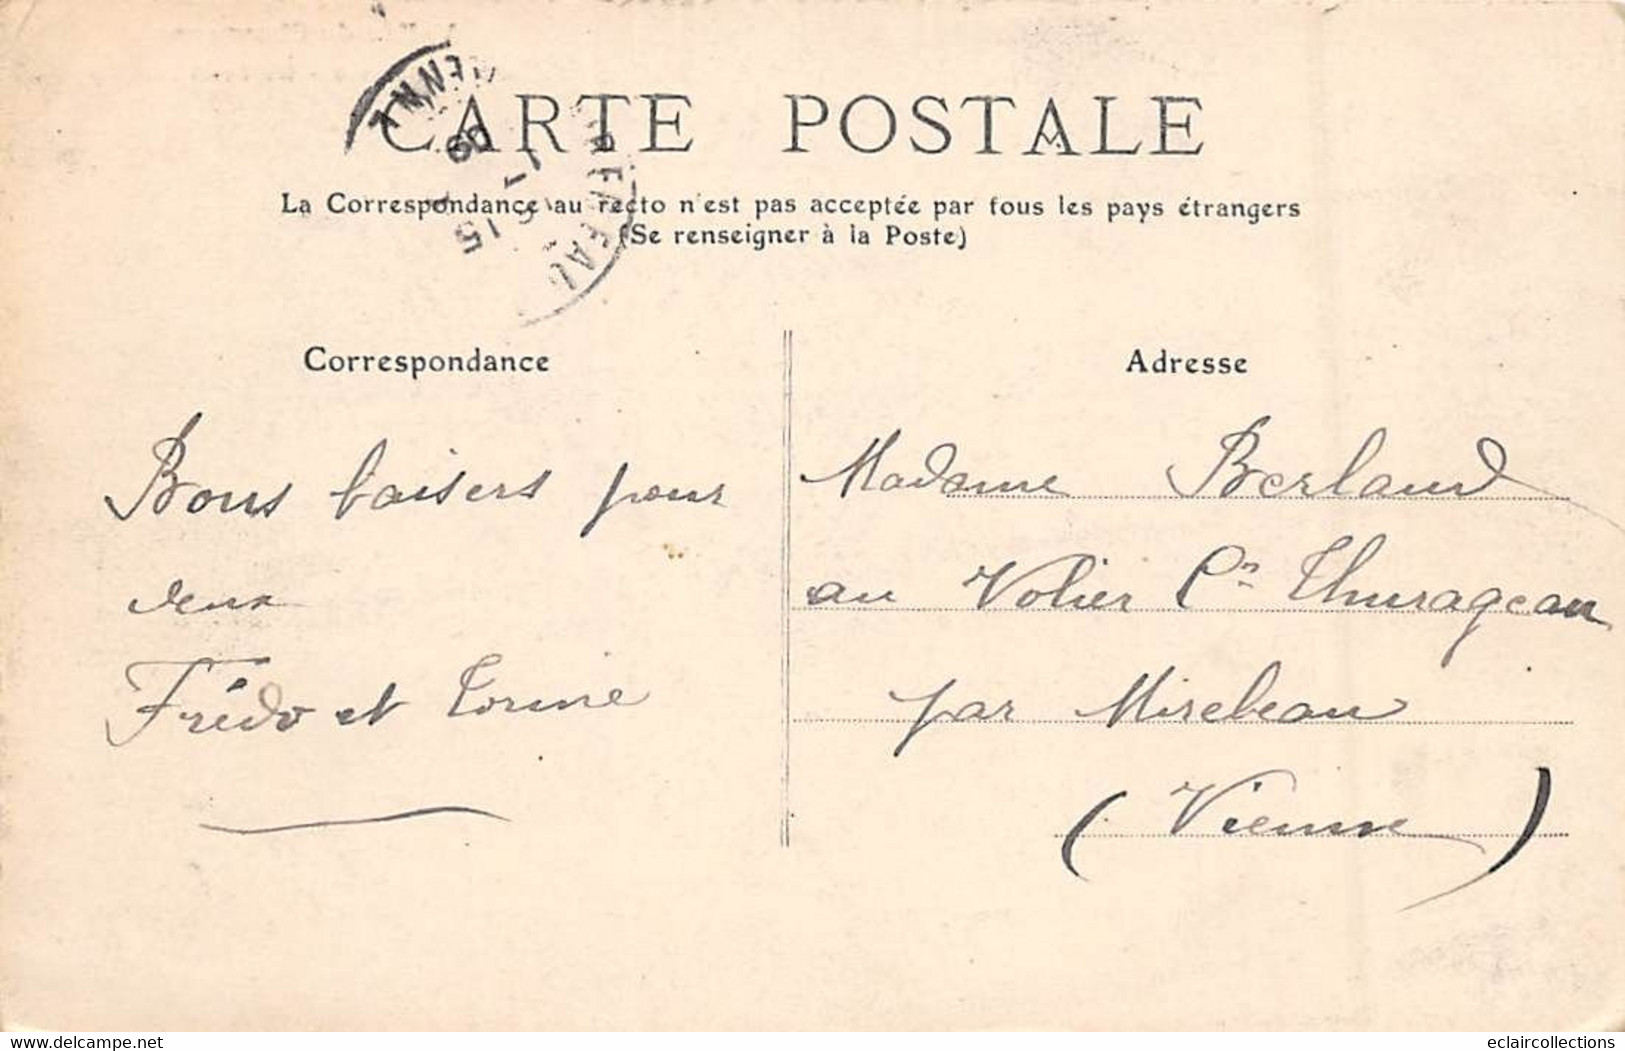 CARTE POSTALE
La Correspondance au recto n'est pas acceptée par tous les pays étrangers
(Se renseigner à la Poste)
Correspondance
Bons baisers pour
deux
Frédo et
Adresse
Madame Berland
au Volier Cⁿᵉ Thurageau
par Mirebeau
(Vienne)
09
15
delcampe.net
eclaircollections